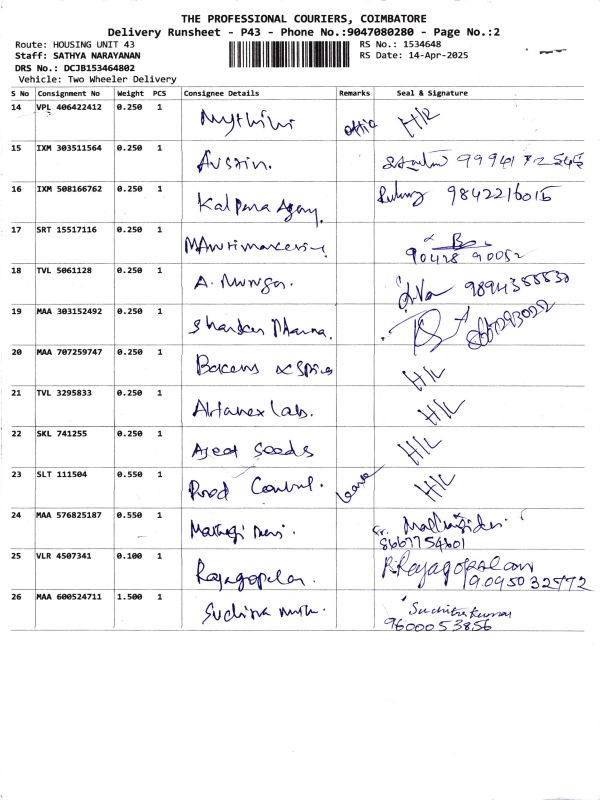 THE PROFESSIONAL COURIERS, COIMBATORE
Delivery Runsheet - P43 - Phone No.:9047080280 - Page No.:2
Route: HOUSING UNIT 43 RS No.: 1534648
Staff: SATHYA NARAYANAN RS Date: 14-Apr-2025
DRS No.: DCJB153464802
Vehicle: Two Wheeler Delivery
S No Consignment No Weight PCS Consignee Details Remarks Seal & Signature
14 VPL 406422412 0.250 1 Mythini H/L
15 IXM 303511564 0.250 1 Austin.
16 IXM 508166762 0.250 1 Kalpana Agency. 9842216015
17 SRT 15517116 0.250 1
90428 90052
18 TVL 5061128 0.250 1 A. Murugan. 9894355530
19 MAA 303152492 0.250 1 Shankar Pharma.
20 MAA 707259747 0.250 1 H/L
21 TVL 3295833 0.250 1 Altanex Lab. H/L
22 SKL 741255 0.250 1 Ajeet Seeds H/L
23 SLT 111504 0.550 1 Control. Leave H/L
24 MAA 576825187 0.550 1
8667754601
25 VLR 4507341 0.100 1 Rajagopalan. R. Rajagopalan
9095032772
26 MAA 600524711 1.500 1 Suchitra Suchitra kumar
9600053856